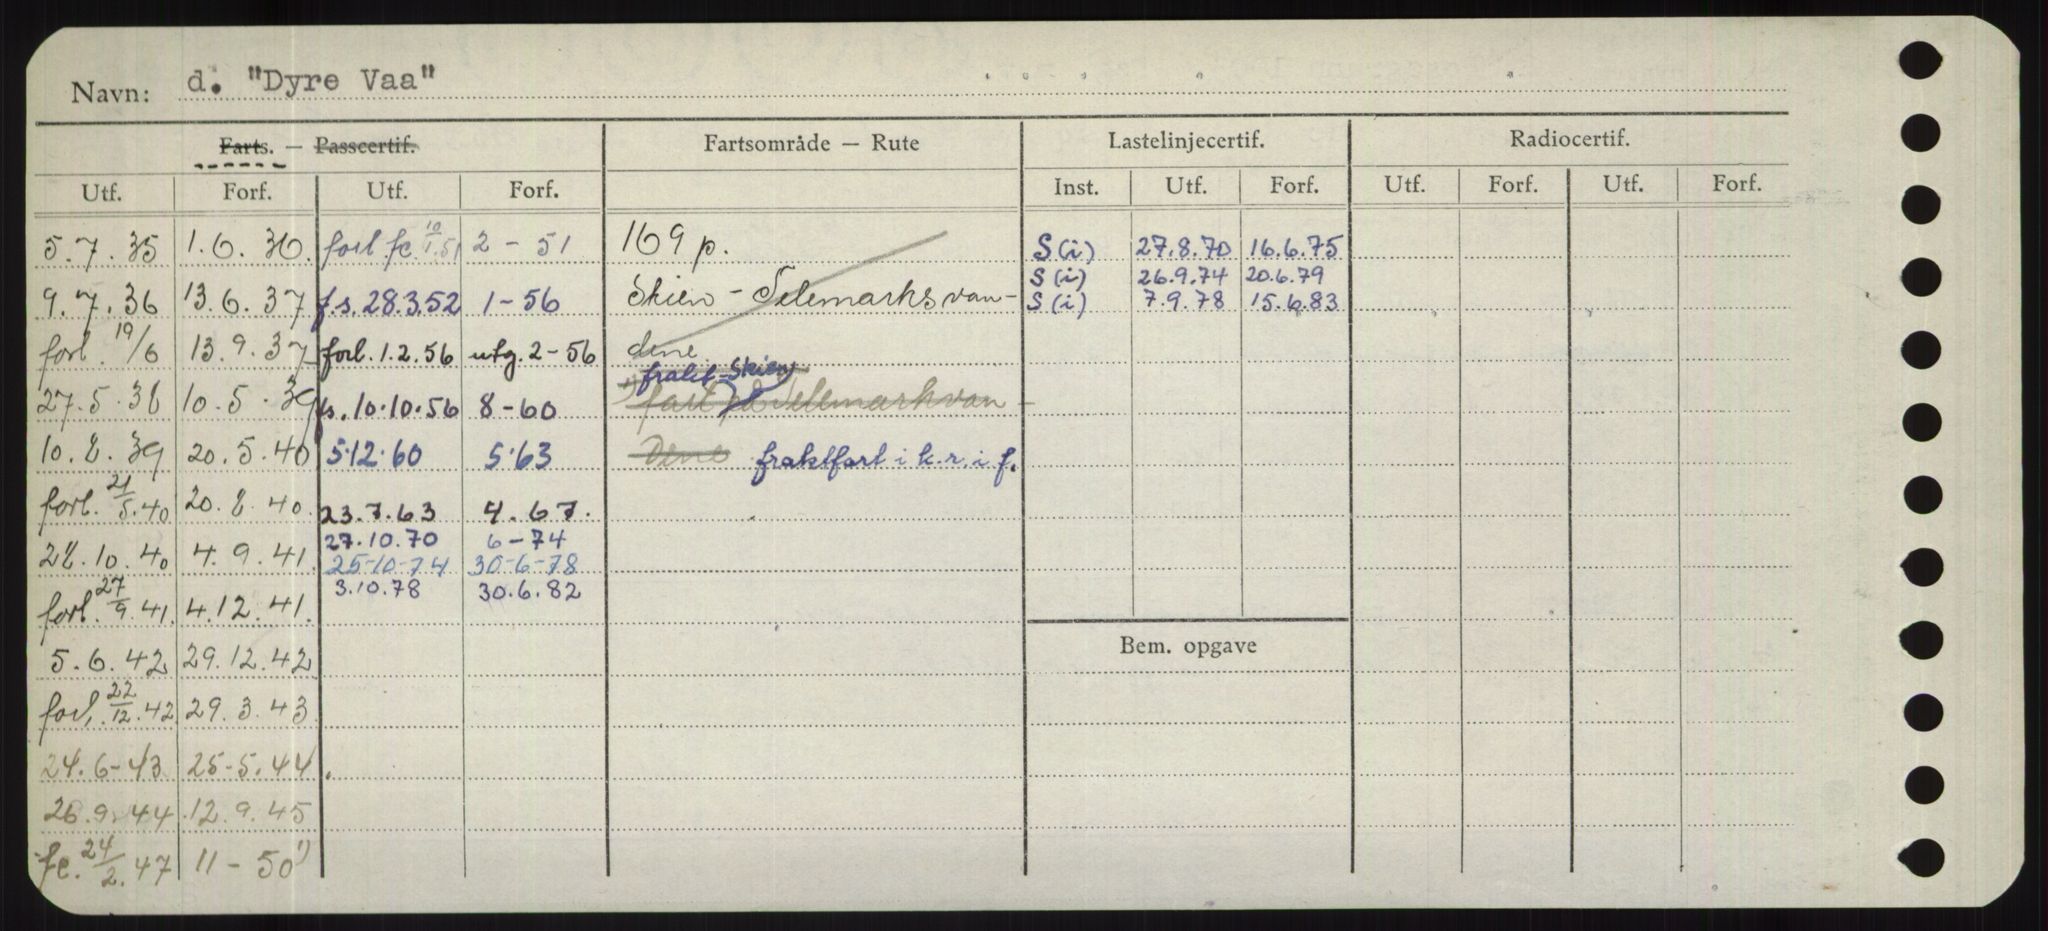 Navn: d. "Dyre Vaa"
Farts. — Passcertif. Fartsområde — Rute Lastelinjecertif. Radiocertif.
Utf. Forf. Utf. Forf. Inst. Utf. Forf. Utf. Forf. Utf. Forf.
5.7.35 1.6.36. forl. fc. 10/1.51 2 - 51 169 p. S(i) 27.8.70 16.6.75
S(i) 26.9.74 20.6.79
9.7.36 13.6.37 f.s. 28.3.52 1-56 Skien - Telemarksvan- S(i) 7.9.78 15.6.83
forl. 19/6 13.9.37 forl. 1.2.56 utg. 2-56 dene
frakt - Skien
27.5.38 10.5.39 fs. 10.10.56 8-60 1) fart på Telemarkvan-
10.8.39 20.5.40 5.12.60 5.63 dene fraktfart i k.r.i f.
forl. 21/5.40 20.8.40. 23.7.63 4.67.
27.10.70 6-74
28.10.40 4.9.41. 25-10-74 30-6-78
3.10.78 30.6.82
forl. 27/9.41. 4.12.41.
5.6.42 29.12.42 Bem. opgave
forl. 22/12.42 29.3.43
24.6-43 25-5.44.
26.9.44 12.9.45
fc. 24/2.47 11-50 1)